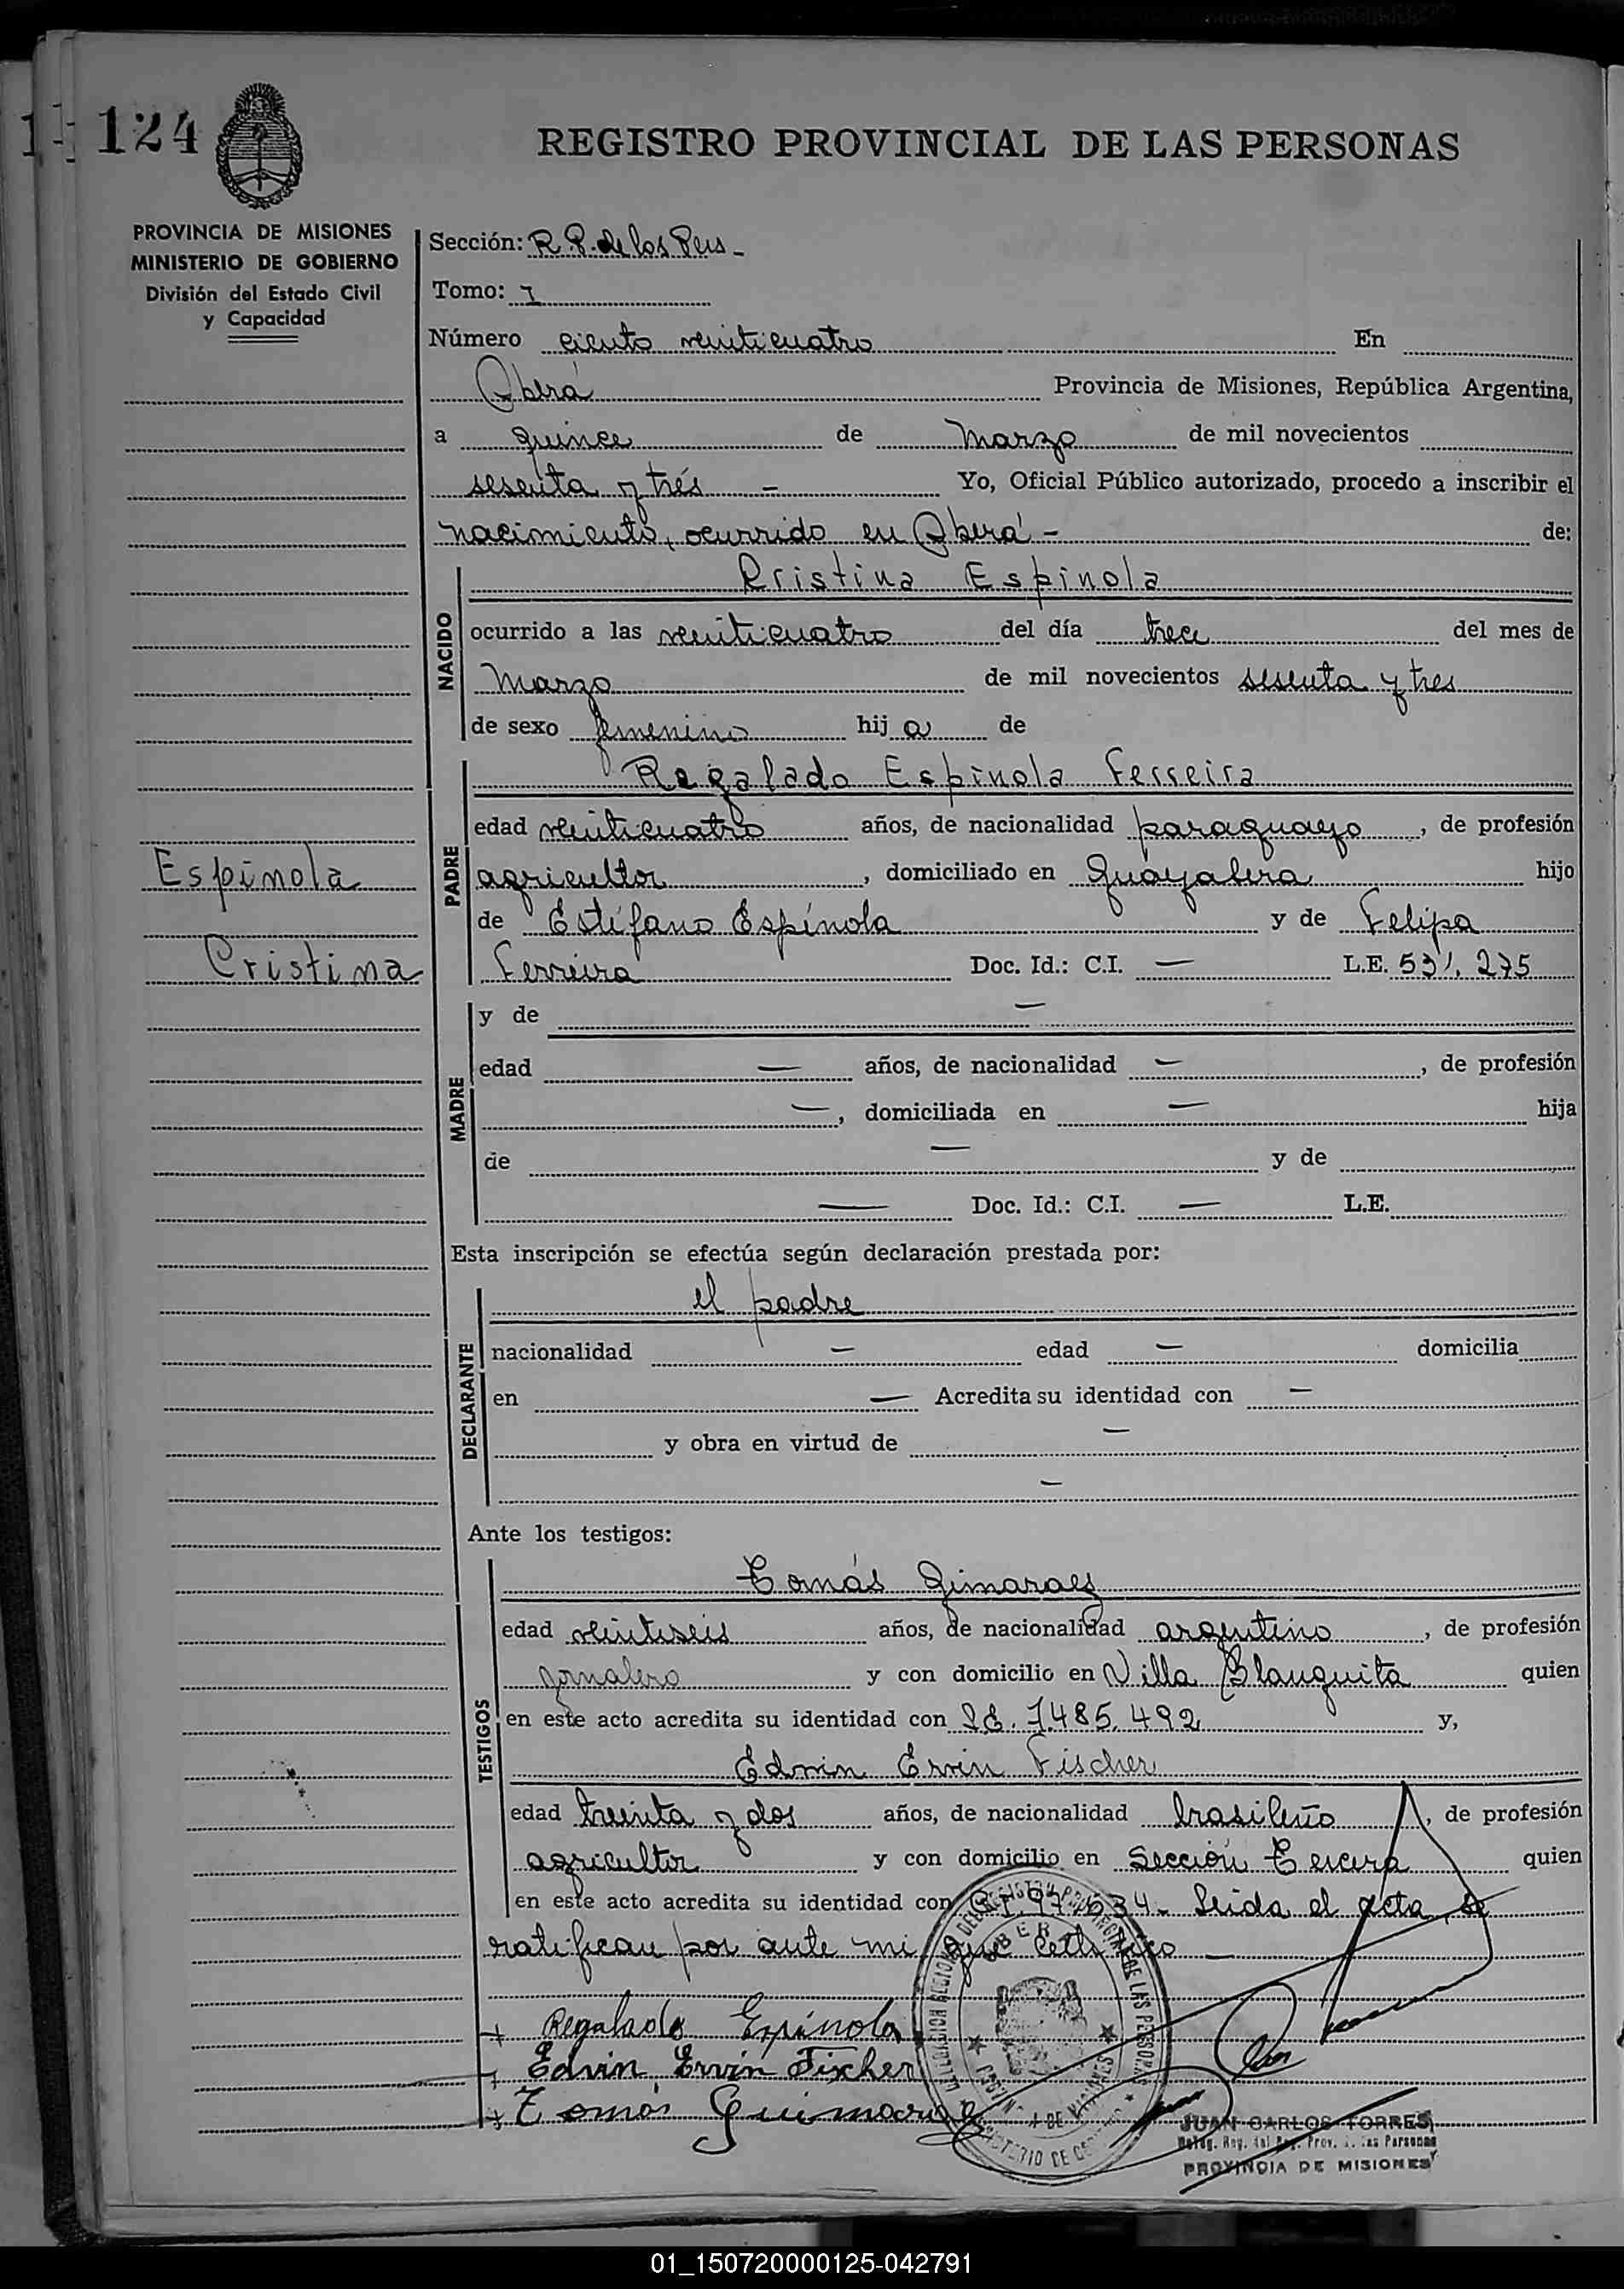 124
REGISTRO PROVINCIAL DE LAS PERSONAS
PROVINCIA DE MISIONES
MINISTERIO DE GOBIERNO
División del Estado Civil
y Capacidad
Sección: R.P. de las Pers -
Tomo: I
Número ciento veinticuatro En
Oberá Provincia de Misiones, República Argentina,
a quince de Marzo de mil novecientos
sesenta y trés - Yo, Oficial Público autorizado, procedo a inscribir el
nacimiento, ocurrido en Oberá - de:
NACIDO
Cristina Espinola
ocurrido a las veinticuatro del día trece del mes de
Marzo de mil novecientos sesenta y tres
de sexo femenino hij a de
PADRE
Regalado Espinola Ferreira
edad veinticuatro años, de nacionalidad paraguayo, de profesión
agricultor, domiciliado en Guayabera hijo
de Estéfano Espínola y de Felipa
Ferreira Doc. Id.: C.I. — L.E. 531.275
Espinola
Cristina
MADRE
y de —
edad — años, de nacionalidad —, de profesión
—, domiciliada en — hija
de — y de
— Doc. Id.: C.I. — L.E.
Esta inscripción se efectúa según declaración prestada por:
DECLARANTE
el padre
nacionalidad — edad — domicilia
en — Acredita su identidad con —
y obra en virtud de —
—
Ante los testigos:
TESTIGOS
Tomás Gimaraes
edad veintiseis años, de nacionalidad argentino, de profesión
jornalero y con domicilio en Villa Blanquita quien
en este acto acredita su identidad con L.E. 7.485.492 y,
Edwin Erwin Fischer
edad treinta y dos años, de nacionalidad brasileño, de profesión
agricultor y con domicilio en Sección Tercera quien
en este acto acredita su identidad con 634- Leida el acta, se
ratifican por ante mi que certifico —
Regalado Espínola
Edvin Ervin Fischer
Tomás
JUAN CARLOS TORRES
Deleg. Reg. del Reg. Prov. d. las Personas
PROVINCIA DE MISIONES
01_150720000125-042791